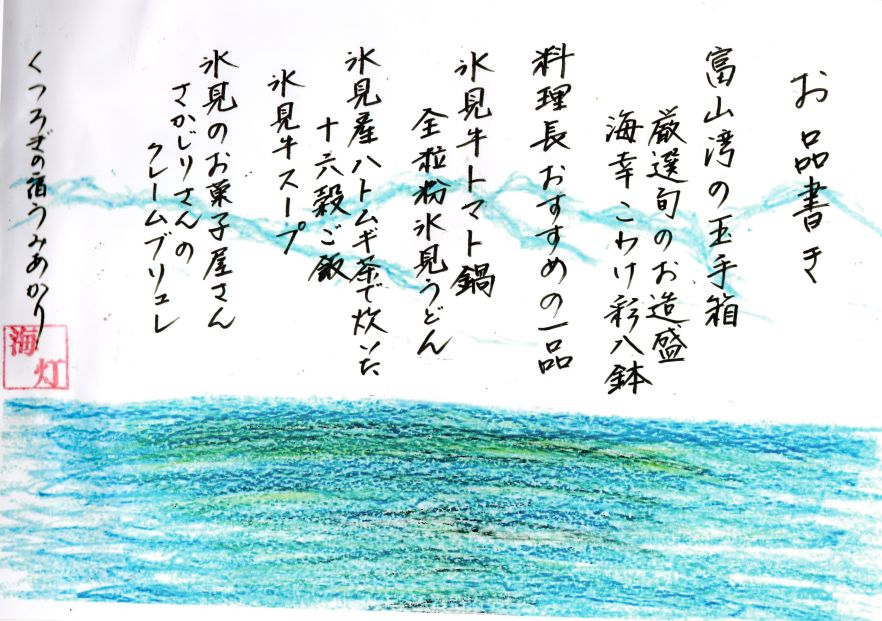 お品書き
富山湾の玉手箱
厳選旬のお造盛
海幸こわけ彩八鉢
料理長おすすめの一品
氷見牛トマト鍋
全粒粉氷見うどん
氷見産ハトムギ茶で炊いた
十六穀ご飯
氷見牛スープ
氷見のお菓子屋さん
さかじりさんの
クレームブリュレ
くつろぎの宿うみあかり
海灯